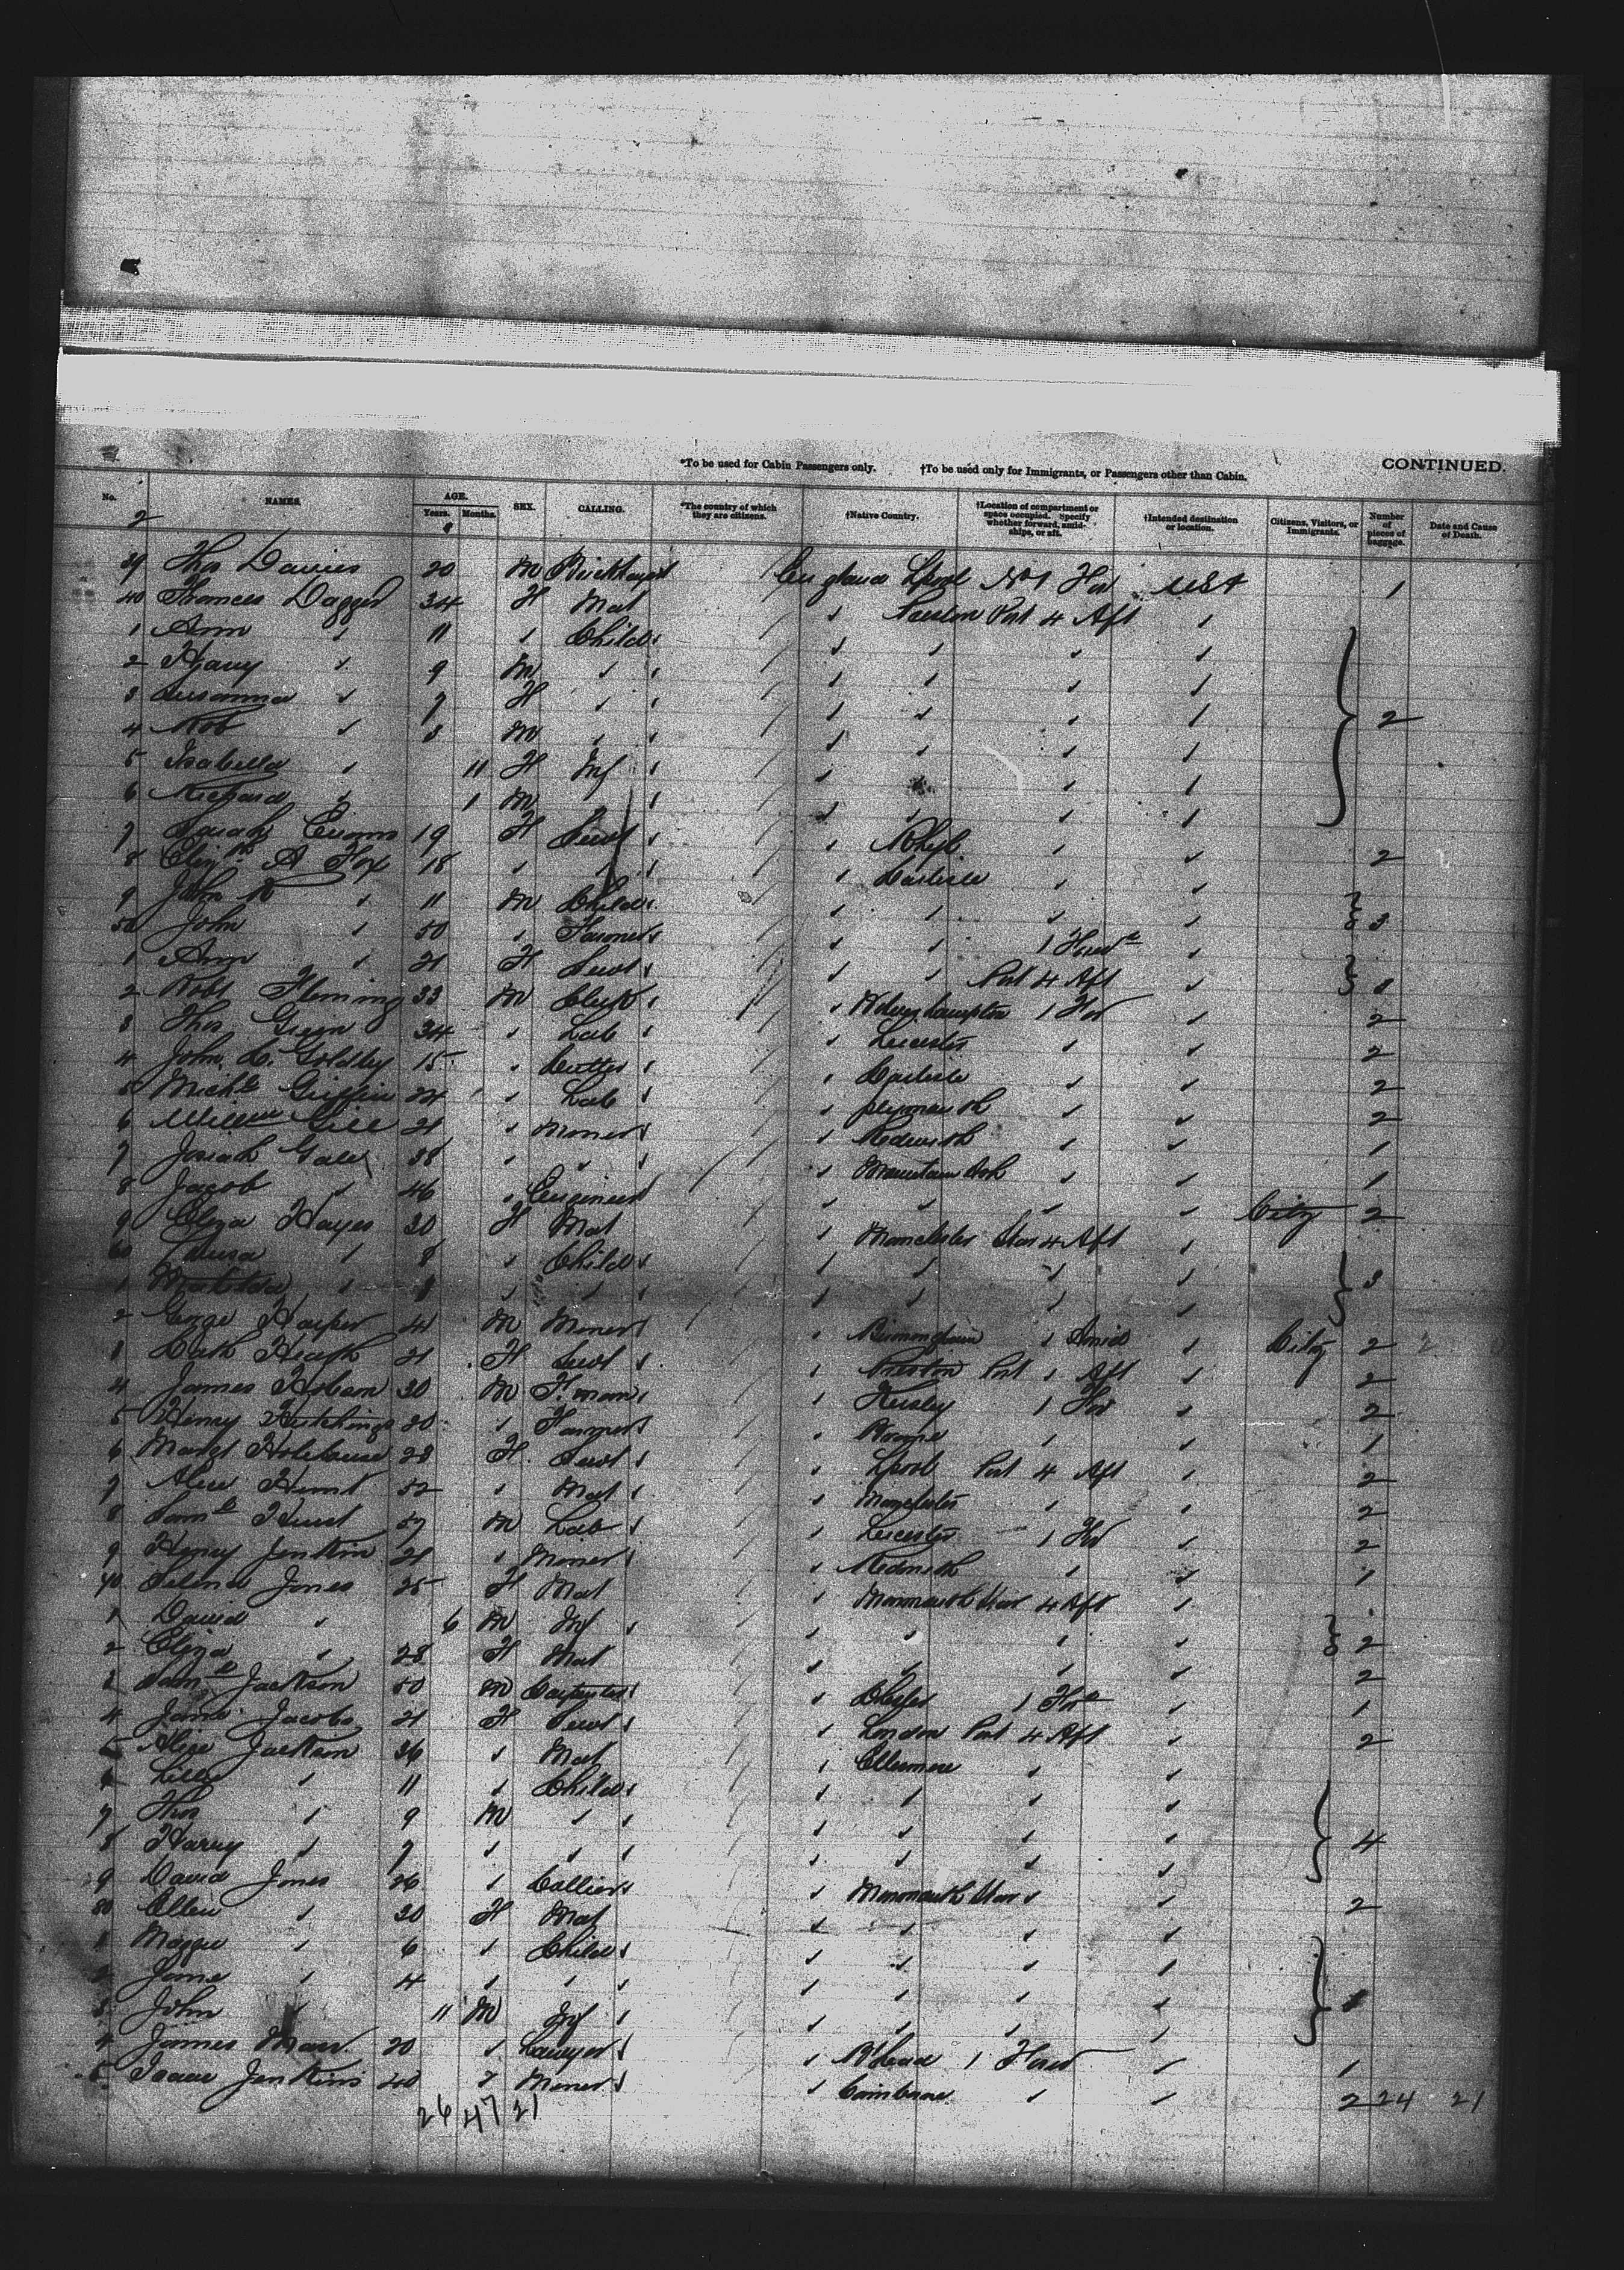 *To be used for Cabin Passengers only. †To be used only for Immigrants, or Passengers other than Cabin. CONTINUED.
No. NAMES. AGE. Years. Months. SEX. CALLING. *The country of which they are citizens. †Native Country. †Location of compartment or space occupied. Specify whether forward, amidships, or aft. †Intended destination or location. Citizens, Visitors, or Immigrants. Number of pieces of baggage. Date and Cause of Death.
2
39 Thos Davies 20 M England Lpool No 1 For USA 1
40 Frances Dagger 34 F Mat Preston Port 4 Aft
1 Ann 11 Child
2 Harry 9 M
3 Susanna 7 F 2
4 Rob 3 M
5 Isabella 11 F Inf
6 Richard 1 M
7 Sarah Evans 19 F Servt Rhyl 2
8 Elizth A Fox 18 Carlisle
9 John R 11 M Child 3
50 John 50 Farmer 1 Forwd
1 Ann 21 F Servt Port 4 Aft 1
2 Robt Fleming 33 M Clerk Wolverhampton 1 For 2
3 Thos Green 34 Lab Leicester 2
4 John C. Goldby 15 Cutter Carlisle 2
5 Michl Griffin 24 Lab Plymouth 2
6 Willm Gill 21 Miner Redruth 1
7 Josiah Gale 38 Mountain Ash 1
8 Jacob 46 Engineer City 2
9 Eliza Hayes 30 F Mat Manchester Star 4 Aft
60 Louisa 8 Child 3
1 Matilda
2 George Harper 41 M Miner Birmingham 1 Amid City 2
3 Cath Heath 21 F Servt Preston Port 1 Aft 2
4 James Hobson 30 M F.man Keisley 1 For 2
5 Henry Hutchings 20 Farmer 1
6 Margt Holehouse 23 F Servt Lpool Port 4 Aft 2
7 Alice Hunt 52 Mat Manchester 2
8 Saml Hurst 57 M Lab Leicester 1 For 2
9 Henry Jenkin 21 Miner Redruth 1
70 Selena Jones 25 F Mat Monmouth Star 4 Aft
1 David 6 M Inf 2
2 Eliza 28 F Mat 2
3 Saml Jackson 50 M Carpenter Chester 1 For 1
4 Jane Jacobs 21 F Servt London Port 4 Aft 2
5 Alice Jackson 36 Mat Ellesmere
6 Lillie 11 Child
7 Thos 9 M
8 Harry 7 4
9 David Jones 26 Collier Monmouth Star 2
80 Ellen 30 F Mat
1 Maggie 6 Child
2 Jane 4
3 John 11 M Inf
4 James Marr 20 Lawyer B'head 1 Forwd 1
5 Isaac Jenkins 40 Miner Camborne 2 24 21
26 47 21